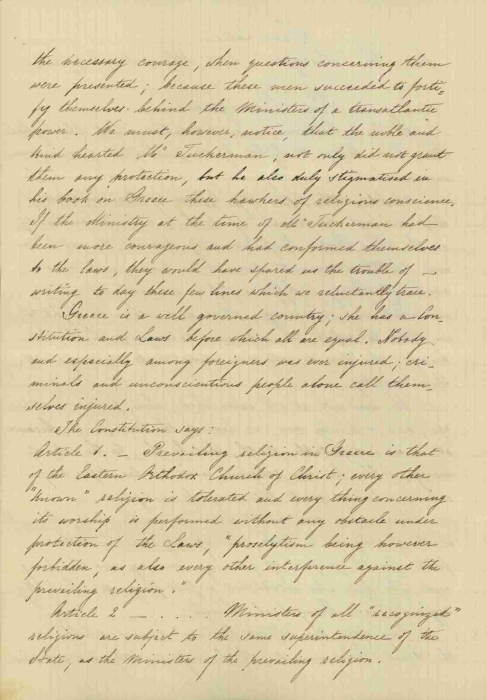 the necessary courage, when questions concerning them
were presented; because these men succeeded to forti-
fy themselves behind the Ministers of a transatlantic
power. We must, however, notice, that the noble and
kind hearted Mr Tuckerman, not only did not grant
them any protection, but he also duly stigmatised in
his book on Greece these hawkers of religious conscience.
If the Ministry at the time of Mr Tuckerman had
been more courageous and had conformed themselves
to the laws, they would have spared us the trouble of —
writing to day these few lines which we reluctantly trace.
Greece is a well governed country; she has a Con-
stitution and Laws before which all are equal. Nobody
and especially among foreigners was ever injured; cri-
minals and unconscientious people alone call them-
selves injured.
The Constitution says:
Article 1. — Prevailing religion in Greece is that
of the Eastern Orthodox Church of Christ; every other
"known" religion is tolerated and every thing concerning
its worship is performed without any obstacle under
protection of the Laws, "proselytism being however
forbidden; as also every other interference against the
prevailing religion."
Article 2 — . . . . . Ministers of all "recognized"
religions are subject to the same superintendence of the
State, as the Ministers of the prevailing religion.